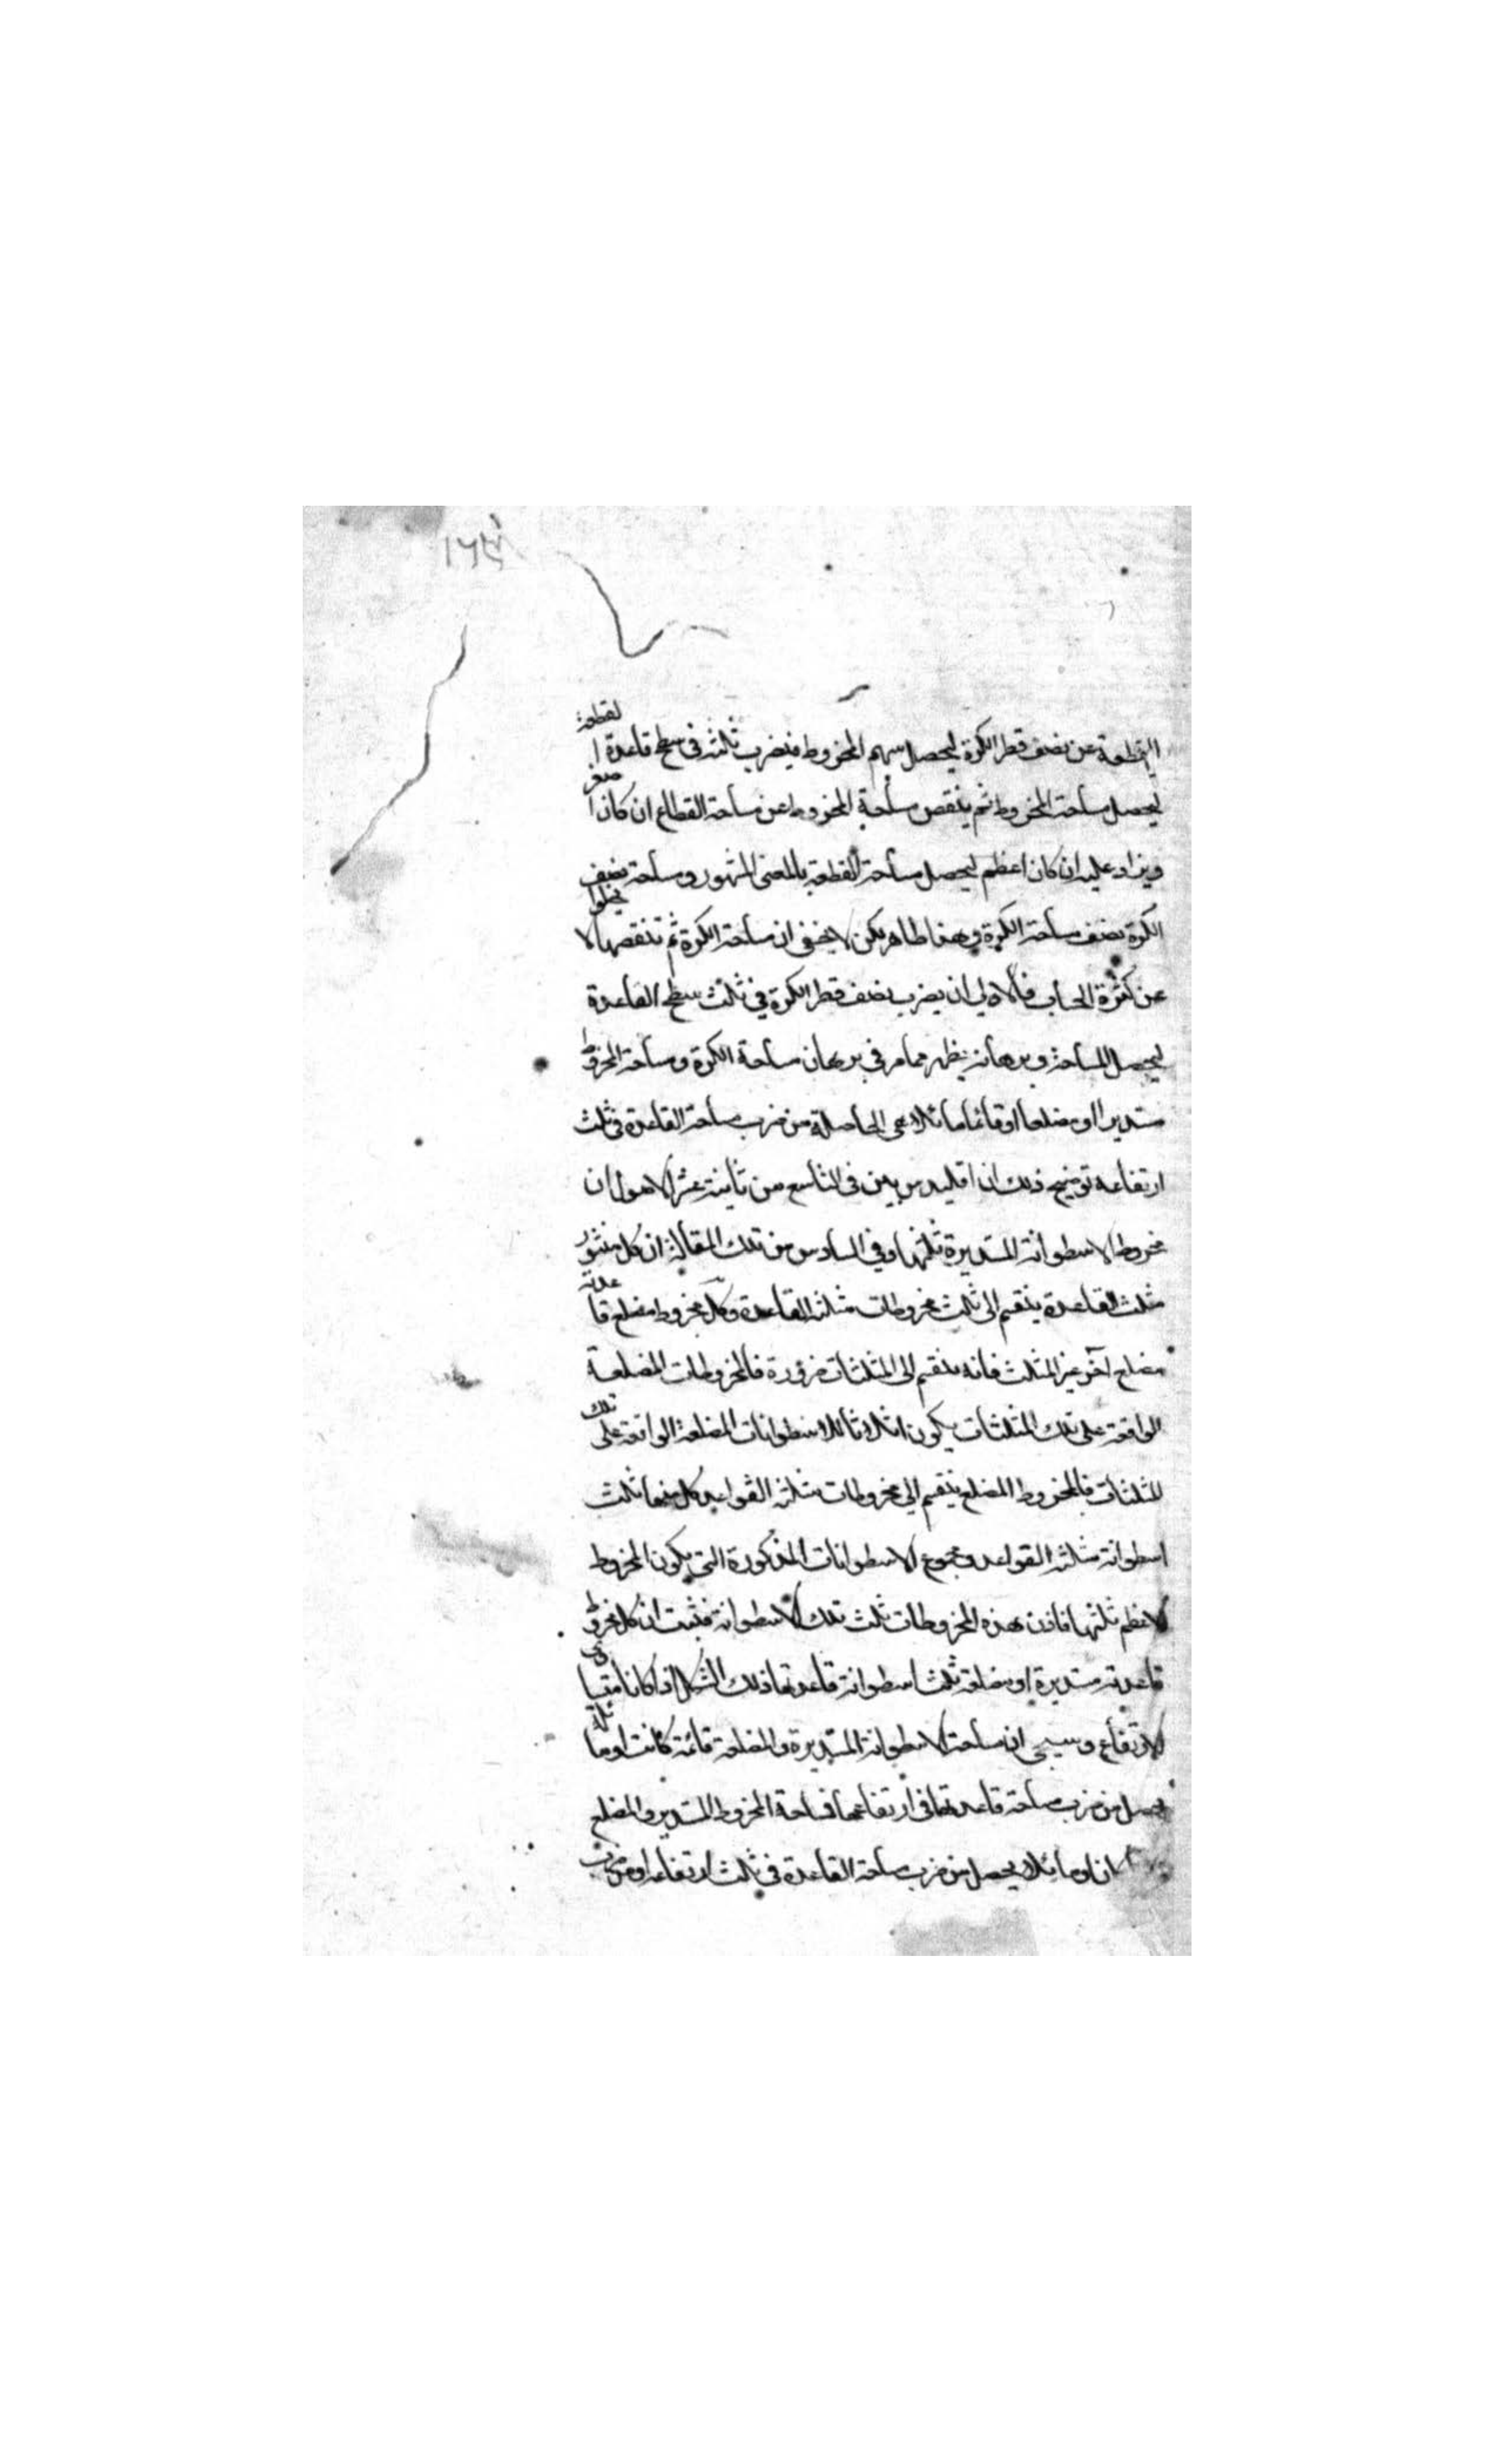 ١٦٣
القطعة عن نصف قطر الكرة ليحصل سهم المخروط فيضرب ثلثه فى سطح قاعدة القطعة
ليحصل مساحة المخروط ثم ينقص مساحة المخروط عن مساحة القطاع ان كان اصغر
ويزاد عليه ان كان اعظم ليحصل مساحة القطعة بالمعنى المشهور ومساحة نصف
الكرة نصف مساحة الكرة وهذا ظاهر لكن لا يخفى ان مساحة الكرة ثم تنقصها لا يخلوا
عن كثرة الحساب فالاولى ان يضرب نصف قطر الكرة في ثلث سطح القاعدة
ليحصل المساحة وبرهانه يظهر مما مر في برهان مساحة الكرة ومساحة المخروط
مستديرا او مضلعا او قائما مائلا هى الحاصلة من ضرب مساحة القاعدة فى ثلث
ارتفاعه توضيح ذلك ان اقليدس بين فى التاسع من ثانية عشر الاصول ان
مخروط الاسطوانة المستديرة ثلثها وفي السادس من تلك المقالة ان كل منشور
مثلث القاعدة ينقسم الى ثلث مخروطات مثلثة القاعدة وكل مخروط مضلع قاعدته
مضلع آخر غير المثلث فانه ينقسم الى المثلثات ضرورة فالمخروطات المضلعة
الواقعة على تلك المثلثات يكون اثلاثا للاسطوانات المضلعة الواقعة على تلك
المثلثات فالمخروط المضلع ينقسم الى مخروطات مثلثة القواعد كل منها ثلث
اسطوانة مثلثة القواعد ومجموع الاسطوانات المذكورة التى يكون المخروط
الاعظم ثلثها فاذن هذه المخروطات ثلث تلك الاسطوانة فثبت ان كل مخروط
قاعدته مستديرة او مضلعة ثلث اسطوانة قاعدتها ذلك الشكل اذا كانا متساوى
الارتفاع وسيجى ان مساحة الاسطوانة المستديرة والمضلعة قائمة كانت او مائلة
يحصل من ضرب مساحة قاعدتها فى ارتفاعها فمساحة المخروط المستدير والمضلع
كان او مائلا يحصل من ضرب مساحة القاعدة فى ثلث ارتفاعه او من ضرب